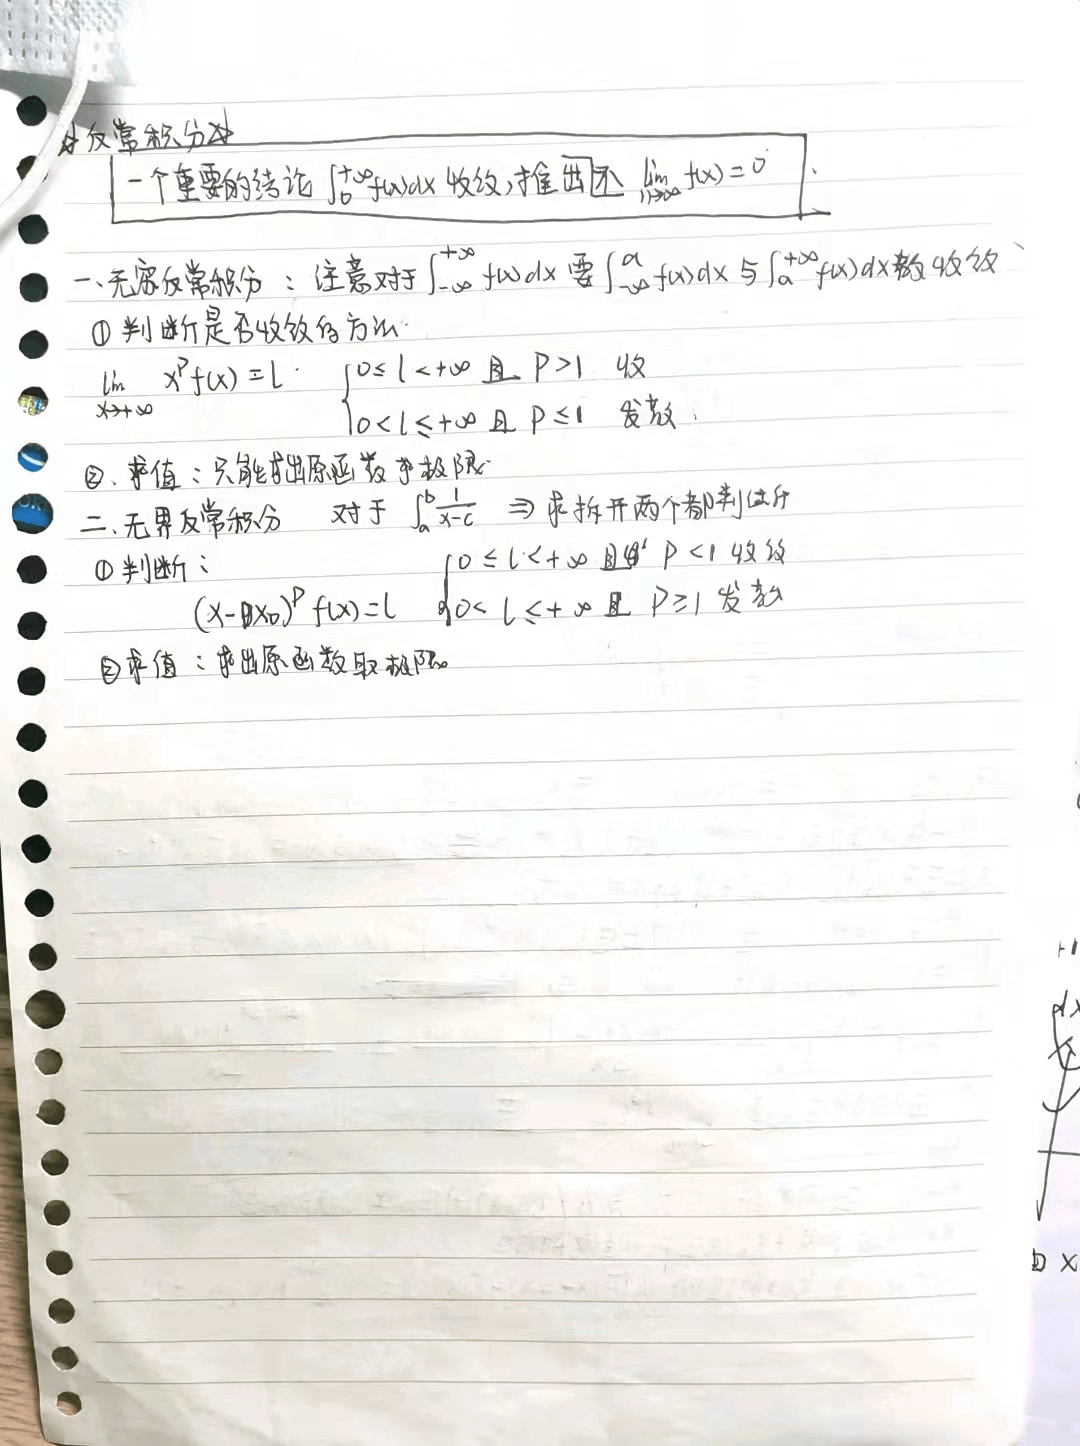 ☆反常积分☆
一个重要的结论 ∫₀^{+∞} f(x)dx 收敛,推出不 lim_{n→∞} f(x)=0
一、无穷反常积分:注意对于∫_{-∞}^{+∞} f(x)dx 要∫_{-∞}^{a} f(x)dx 与∫_{a}^{+∞} f(x)dx 敛收敛
①判断是否收敛的方法.
lim_{x→+∞} x^p f(x)=l. { 0≤l<+∞ 且 P>1 收
0<l≤+∞ 且 P≤1 发散.
②.求值:只能求出原函数求极限.
二.无界反常积分 对于 ∫_a^b 1/(x-c) ⇒ 求拆开两个都判
①判断: { 0≤l<+∞ 且 P<1 收敛
(x-x₀)^p f(x)=l 0<l≤+∞ 且 P≥1 发散
②求值:求出原函数取极限。
dx
x